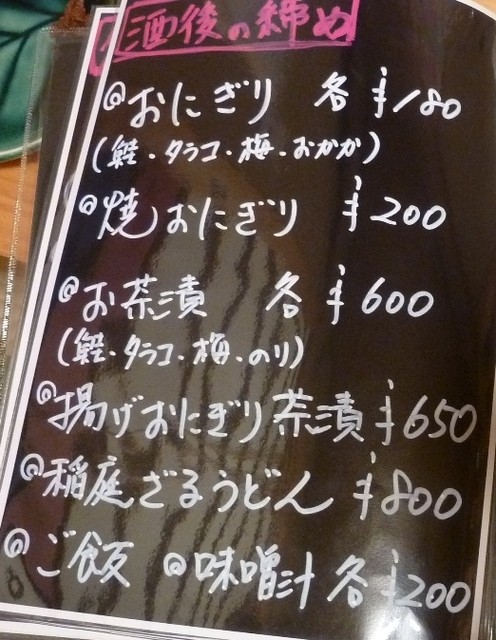 酒後の締め
@おにぎり 各 ¥180
(鮭・タラコ・梅・おかか)
@焼おにぎり ¥200
@お茶漬 各 ¥600
(鮭・タラコ・梅・のり)
@揚げおにぎり茶漬 ¥650
@稲庭ざるうどん ¥800
@ご飯 @味噌汁 各 ¥200